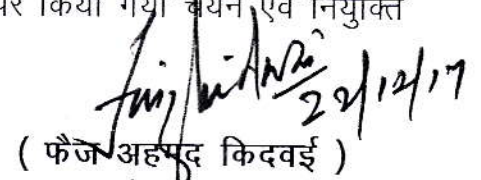 पर किया गया चयन एवं नियुक्ति
22/12/17
( फैज अहमद किदवई )